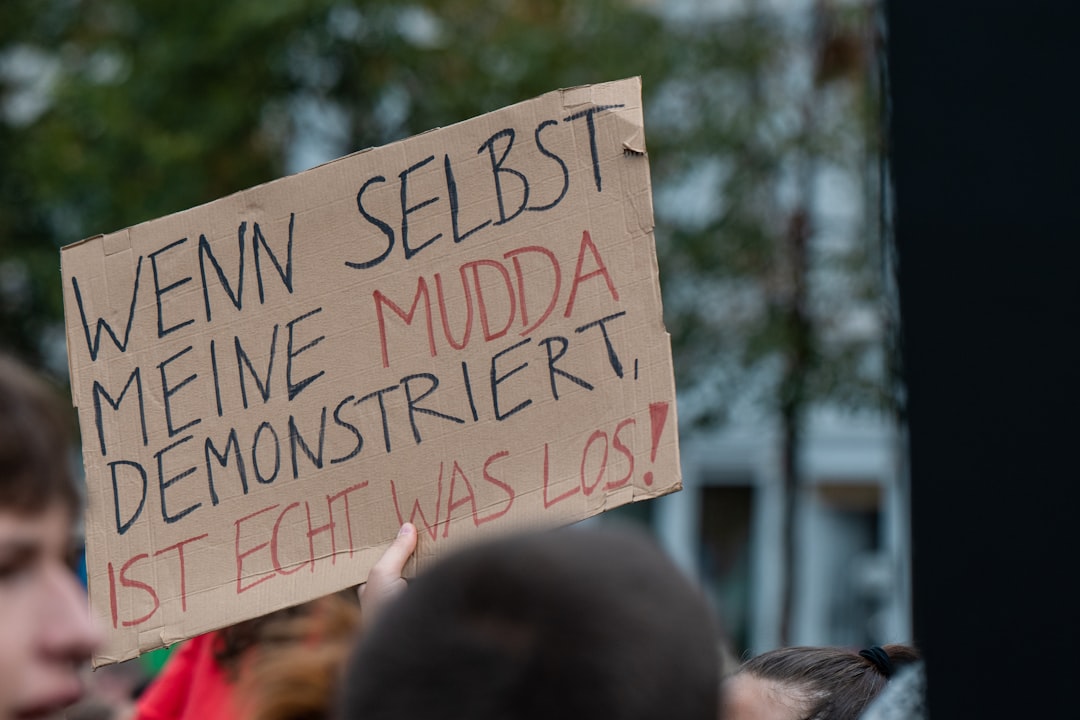 WENN SELBST
MEINE MUDDA
DEMONSTRIERT,
IST ECHT WAS LOS!